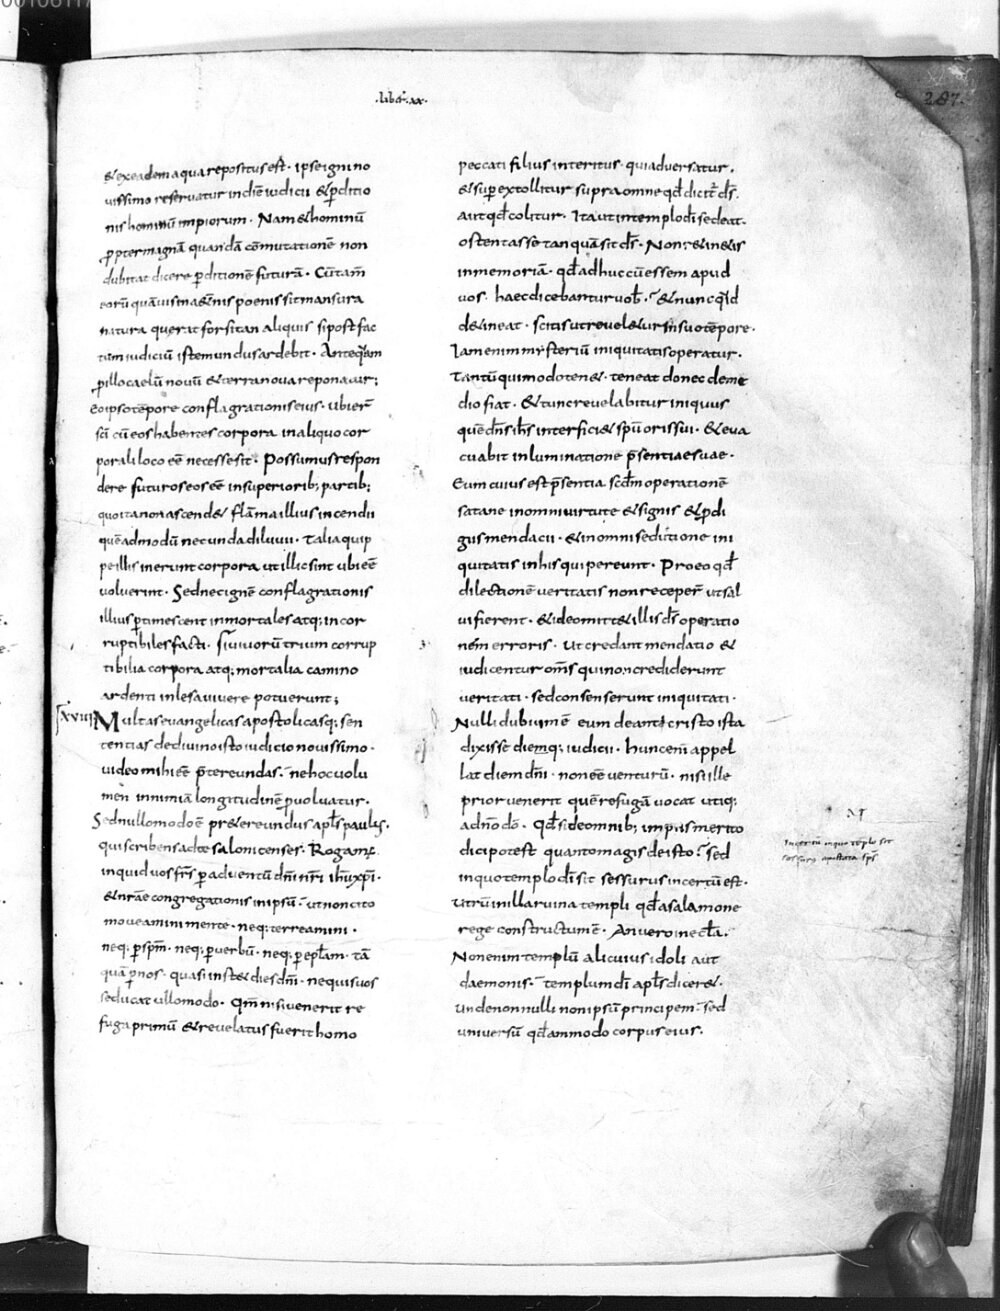 00106117
·liber· xx·
287.
& ex eadem aqua repositus est· ipse igni no
uissimo reseruatur in diē iudicii & p̄ditio
nis hominū impiorum· Nam & hominū
ppter magnā quandā cōmutationē non
dubitat dicere p̄ditionē futurā· Cū tam̄
eorū quāuis in aet̄nis poenis sit mansura
natura querat forsitan aliquis si post fac
tum iudiciū iste mundus ardebit· Anteq̄am
p illo caelū nouū & terra noua reponatur;
eo ipso tēpore conflagrationis eius· ubi er̄
sc̄i cū eos habentes corpora in aliquo cor
porali loco eē necesse sit· Possumus respon
dere futuros eos eē in superiorib; partib;
quo ita non ascend& flāma illius incendii
quēadmodū nec unda diluuii· Talia quip
pe illis inerunt corpora ut illic sint ubi eē
uoluerint· Sed nec ignē conflagrationis
illius p̄timescent inmortales atq; incor
ruptibiles facti· Si uirorū trium corrup
tibilia corpora atq; mortalia camino
ardenti inlesa uiuere potuerunt;
xviiii Multas euangelicas apostolicasq; sen
tentias de diuino isto iudicio nouissimo·
uideo mihi eē p̄tereundas· ne hoc uolu
men in nimiā longitudinē puoluatur·
Sed nullo modo ē pr&ereundus apl̄s paulus·
qui scribens ad tesalonicenses· Rogam;
inquid uos fr̄s p̄ aduentū dn̄i nr̄i ih̄u xp̄i·
& nr̄ae congregationis in ipsū· ut non cito
moueamini mente· neq; terreamini·
neq; p̄ sp̄m· neq; p̄ uerbū· neq; p̄ epl̄am· tā
quā p nos· quasi inst& dies dn̄i· ne quis uos
seducat ullo modo· Qm̄ nisi uenerit re
fuga primū & reuelatus fuerit homo
peccati filius interitus· qui aduersatur·
& sup̄ extollitur supra omne qd̄ dicit̄ d̄s·
aut qd̄ colitur· Ita ut in templo dī sedeat·
ostentas se tanquā sit d̄s· Non r&in&is
in memoriā· qd̄ adhuc cū essem apud
uos· haec dicebantur uob̄· & nunc q̄d
d&ineat· scitis ut reuel&ur in suo tēpore·
Iam enim mysteriū iniquitatis operatur·
Tantū qui modo ten&· teneat donec de me
dio fiat· & tunc reuelabitur iniquus
quē dn̄s ih̄s interfici& spū oris sui· & eua
cuabit in luminatione p̄sentiae suae·
Eum cuius est p̄sentia scd̄m operationē
satane in omni uirtute & signis & p̄di
giis mendacii· & in omni seductione ini
quitatis in his qui pereunt· Pro eo qd̄
dilectionē ueritatis non receper̄ ut sal
ui fierent· & ideo mitt& illis d̄s operatio
nēm erroris· Ut credant mendatio &
iudicentur om̄s qui non crediderunt
ueritati· sed consenserunt iniquitati·
Nulli dubium ē eum de antecristo ista
dixisse diemq; iudicii· hunc em̄ appel
lat diem dn̄i· non eē venturū· nisi ille
prior uenerit quē refugā uocat utiq;
a dn̄o dō· Qd̄ si de omnib; impiis merito
dici potest quanto magis de isto· sed
in quo templo dī sit sessurus incertū est·
Utrū in illa ruina templi qd̄ a salamone
rege constructum ē· An uero in eccl̄a·
Non enim templū alicuius idoli aut
daemonis· templum dī apl̄s dicer&·
Unde nonnulli non ipsū principem· sed
uniuersū qd̄ammodo corpus eius·
N̄
Incertū in quo tēplo sit
sessurus apostata sp̄s